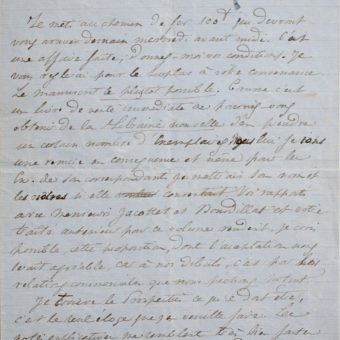 Je mets au chemin de fer 100 qui devront
vous arriver demain mercredi avant midi. C'est
une affaire faite, donnez-moi vos conditions. Je
vous réglerai pour le surplus à votre convenance
Le manuscrit le plutot possible. Comme c'est
un livre de vente immédiate ne pourriez vous
obtenir de la Librairie nouvelle d'en prendre
un certain nombre d'exemplaires je lui ferais
une remise en conséquence et même pour
de ses correspondants je mettrais son nom et
les vôtres si elle consentait Vos rapports
avec Messieurs Jacottet et Bourdillat et votre
traité antérieur pour ce volume rendent, je crois
possible, cette proposition, dont l'acceptation nous
serait agréable, car à nos débuts, c'est par les
relations commerciales que nous péchons surtout
Je trouve le Prospectus ce qu'il doit être,
c'est le seul éloge que je veuille faire. Les
notes explicatives me semblent très bien faites